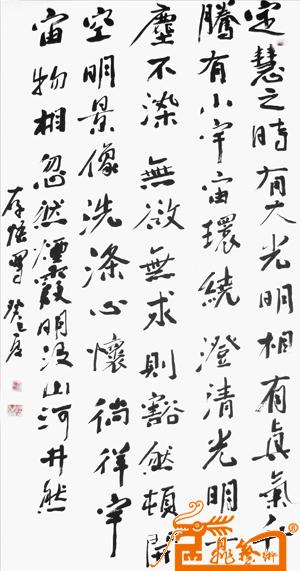 定慧之時有大光明相有真氣升
騰有小宇宙環繞澄清光明一
塵不染無欲無求則豁然頓開
空明景像洗滌心懷徜徉宇
宙物相忽然煙霞明没山河井然
癸巳夏